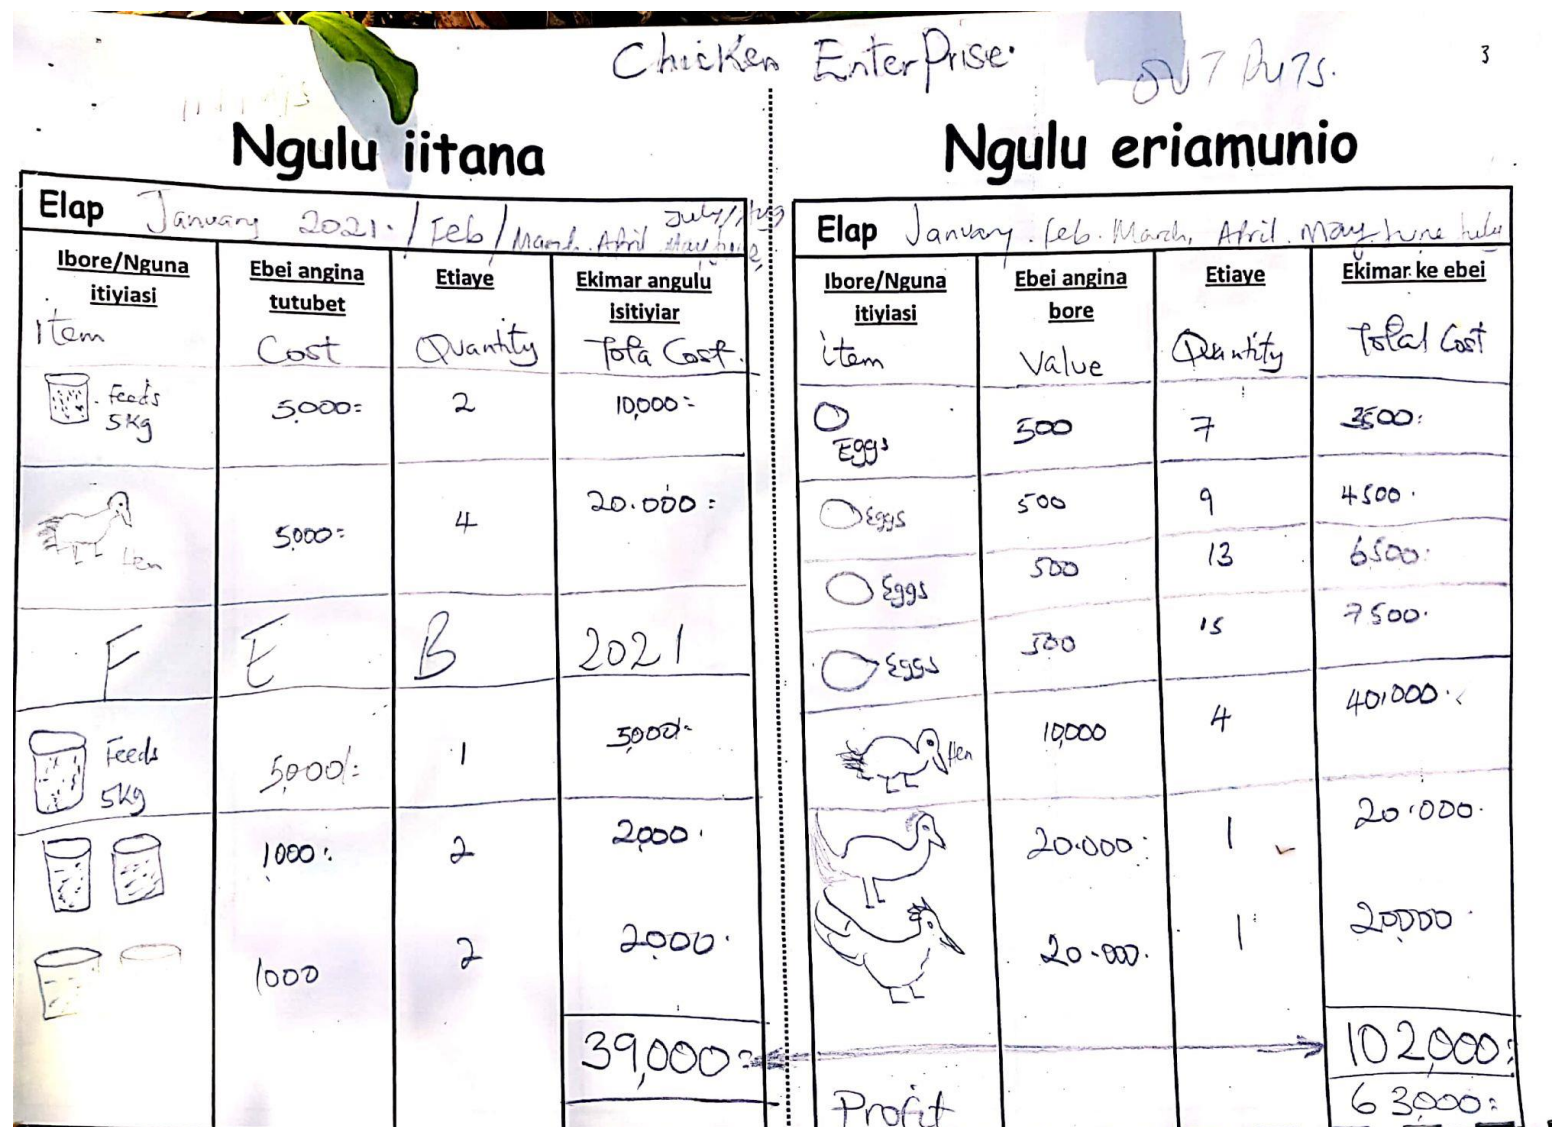 Chicken EnterPrise.
OUTPUTS.
3
Ngulu iitana
Elap January 2021. / Feb / March. April May June, July / Aug
Ibore/Nguna itiyiasi Ebei angina tutubet Etiaye Ekimar angulu isitiyiar
Item Cost Quantity Tota Cost.
Feeds 5kg 5000= 2 10,000=
Hen 5000= 4 20.000=
FEB 2021
Feeds 5kg 5,000/= 1 5,000/=
1000 2 2,000
1000 2 2,000
39,000=
Ngulu eriamunio
Elap January. Feb. March, April. May June July
Ibore/Nguna itiyiasi Ebei angina bore Etiaye Ekimar ke ebei
item Value Quantity Total Cost
Eggs 500 7 3500:
Eggs 500 9 4500.
Eggs 500 13 6500:
Eggs 500 15 7500.
Hen 10,000 4 40,000.
20.000: 1 20.000.
20.000. 1 20,000.
102,000:
Profit 63,000: